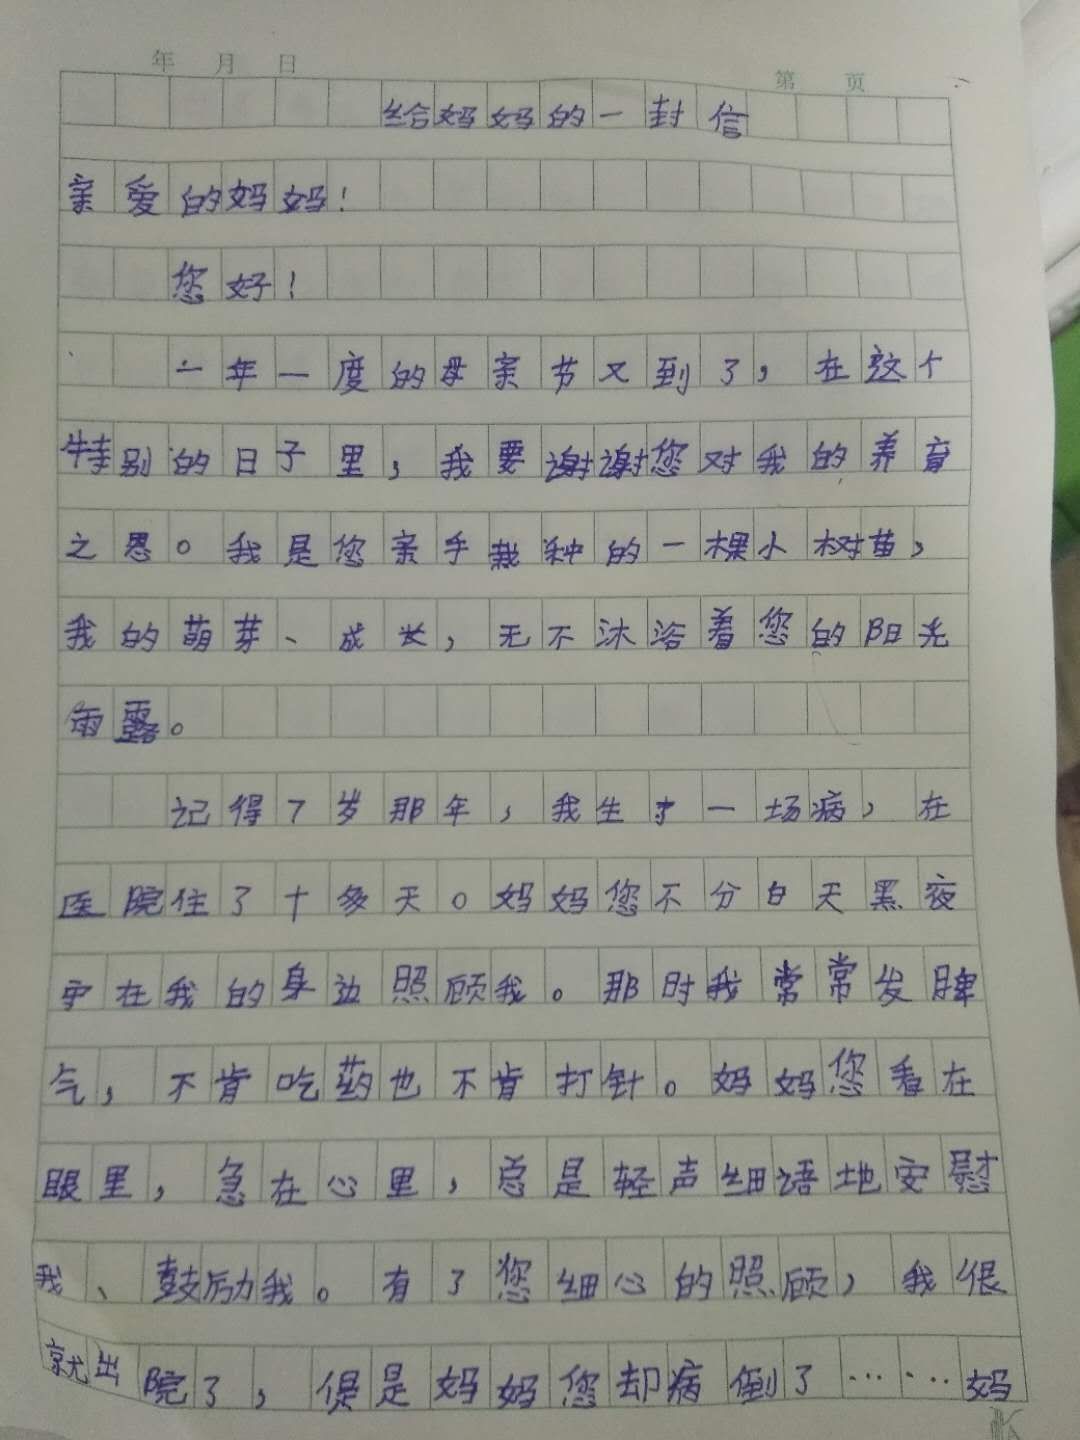 年 月 日
第 页
给妈妈的一封信
亲爱的妈妈！
您好！
一年一度的母亲节又到了，在这个
特别的日子里，我要谢谢您对我的养育
之恩。我是您亲手栽种的一棵小树苗，
我的萌芽、成长，无不沐浴着您的阳光
雨露。
记得7岁那年，我生了一场病，在
医院住了十多天。妈妈您不分白天黑夜
守在我的身边照顾我。那时我常常发脾
气，不肯吃药也不肯打针。妈妈您看在
眼里，急在心里，总是轻声细语地安慰
我、鼓励我。有了您细心的照顾，我很
就出院了，但是妈妈您却病倒了……妈